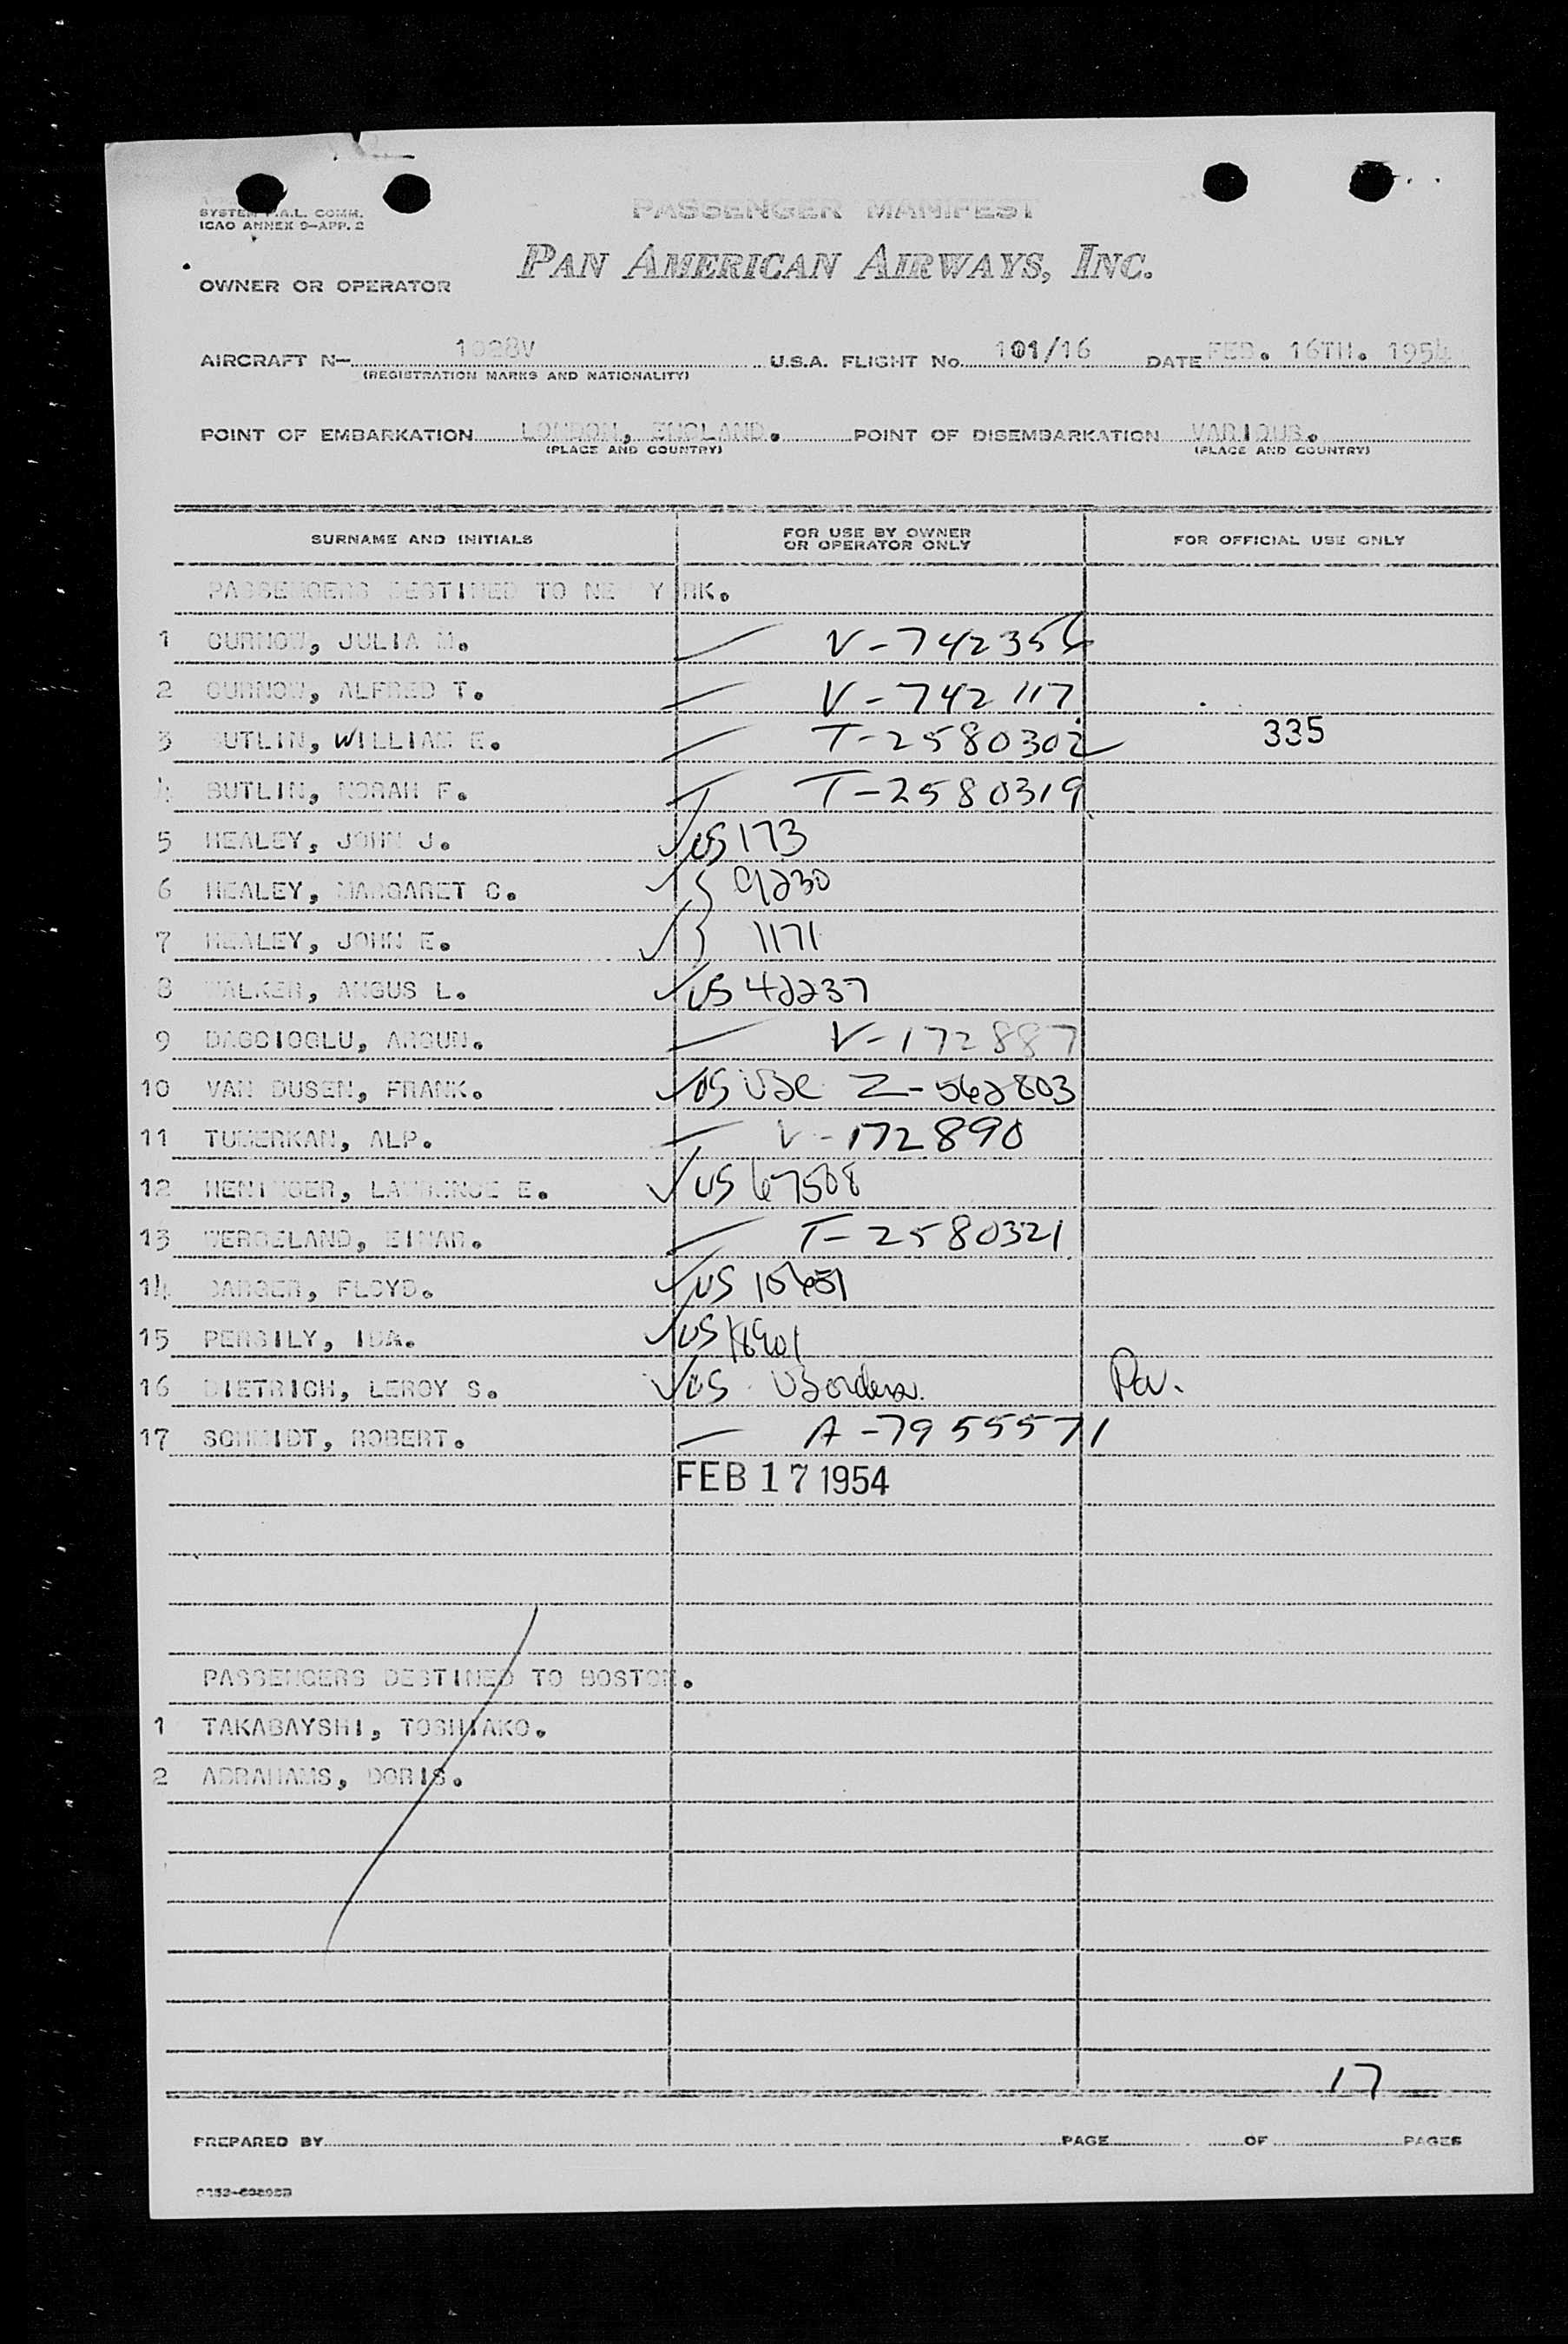 PASSENGER MANIFEST
SYSTEM P.A.L. COMM.
ICAO ANNEX 9-APP. 2
PAN AMERICAN AIRWAYS, INC.
OWNER OR OPERATOR
AIRCRAFT N- 1028V U.S.A. FLIGHT No. 101/16 DATE FEB. 16TH. 1954
(REGISTRATION MARKS AND NATIONALITY)
POINT OF EMBARKATION LONDON, ENGLAND. POINT OF DISEMBARKATION VARIOUS.
(PLACE AND COUNTRY) (PLACE AND COUNTRY)
SURNAME AND INITIALS FOR USE BY OWNER OR OPERATOR ONLY FOR OFFICIAL USE ONLY
PASSENGERS DESTINED TO NEW YORK.
1 CURNOW, JULIA M. V-742356
2 CURNOW, ALFRED T. V-742117
3 BUTLIN, WILLIAM E. T-2580302 335
4 BUTLIN, NORAH F. T-2580319
5 HEALEY, JOHN J. US 173
6 HEALEY, MARGARET C. 9230
7 HEALEY, JOHN E. 1171
8 WALKER, ANGUS L. US 42237
9 DAGCIOGLU, ARGUN. V-172887
10 VAN DUSEN, FRANK. US Z-562803
11 TUMERKAN, ALP. V-172890
12 HENINGER, LAWRENCE E. US 67508
13 WERGELAND, EINAR. T-2580321
14 BARGER, FLOYD. US 15651
15 PERSILY, IDA. US
16 DIETRICH, LEROY S. US
17 SCHMIDT, ROBERT. A-7955571
FEB 17 1954
PASSENGERS DESTINED TO BOSTON.
1 TAKABAYSHI, TOSHIAKO.
2 ABRAHAMS, DORIS.
17
PREPARED BY PAGE OF PAGES